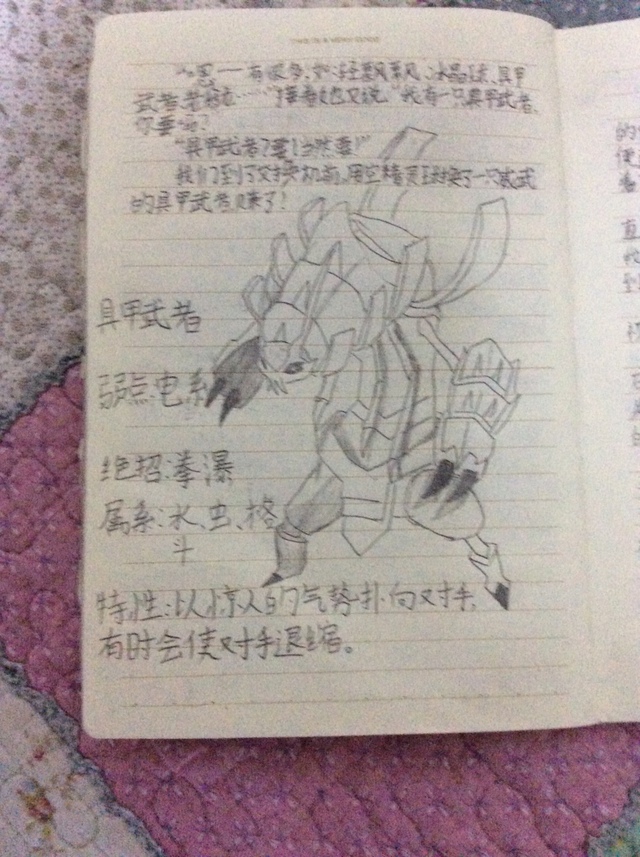 “嗯……有很多，如：轻飘飘，冰晶球，具甲
武者……”接着她又说：“我有一只具甲武者，
你要吗？
“具甲武者？要！当然要！”
我们到了对换机前，用空精灵球换了一只威武
的具甲武者，赚了！
具甲武者
弱点：电系
绝招：拳瀑
属系：水、虫、格
斗
特性：以惊人的气势扑向对手，
有时会使对手退缩。
的
直